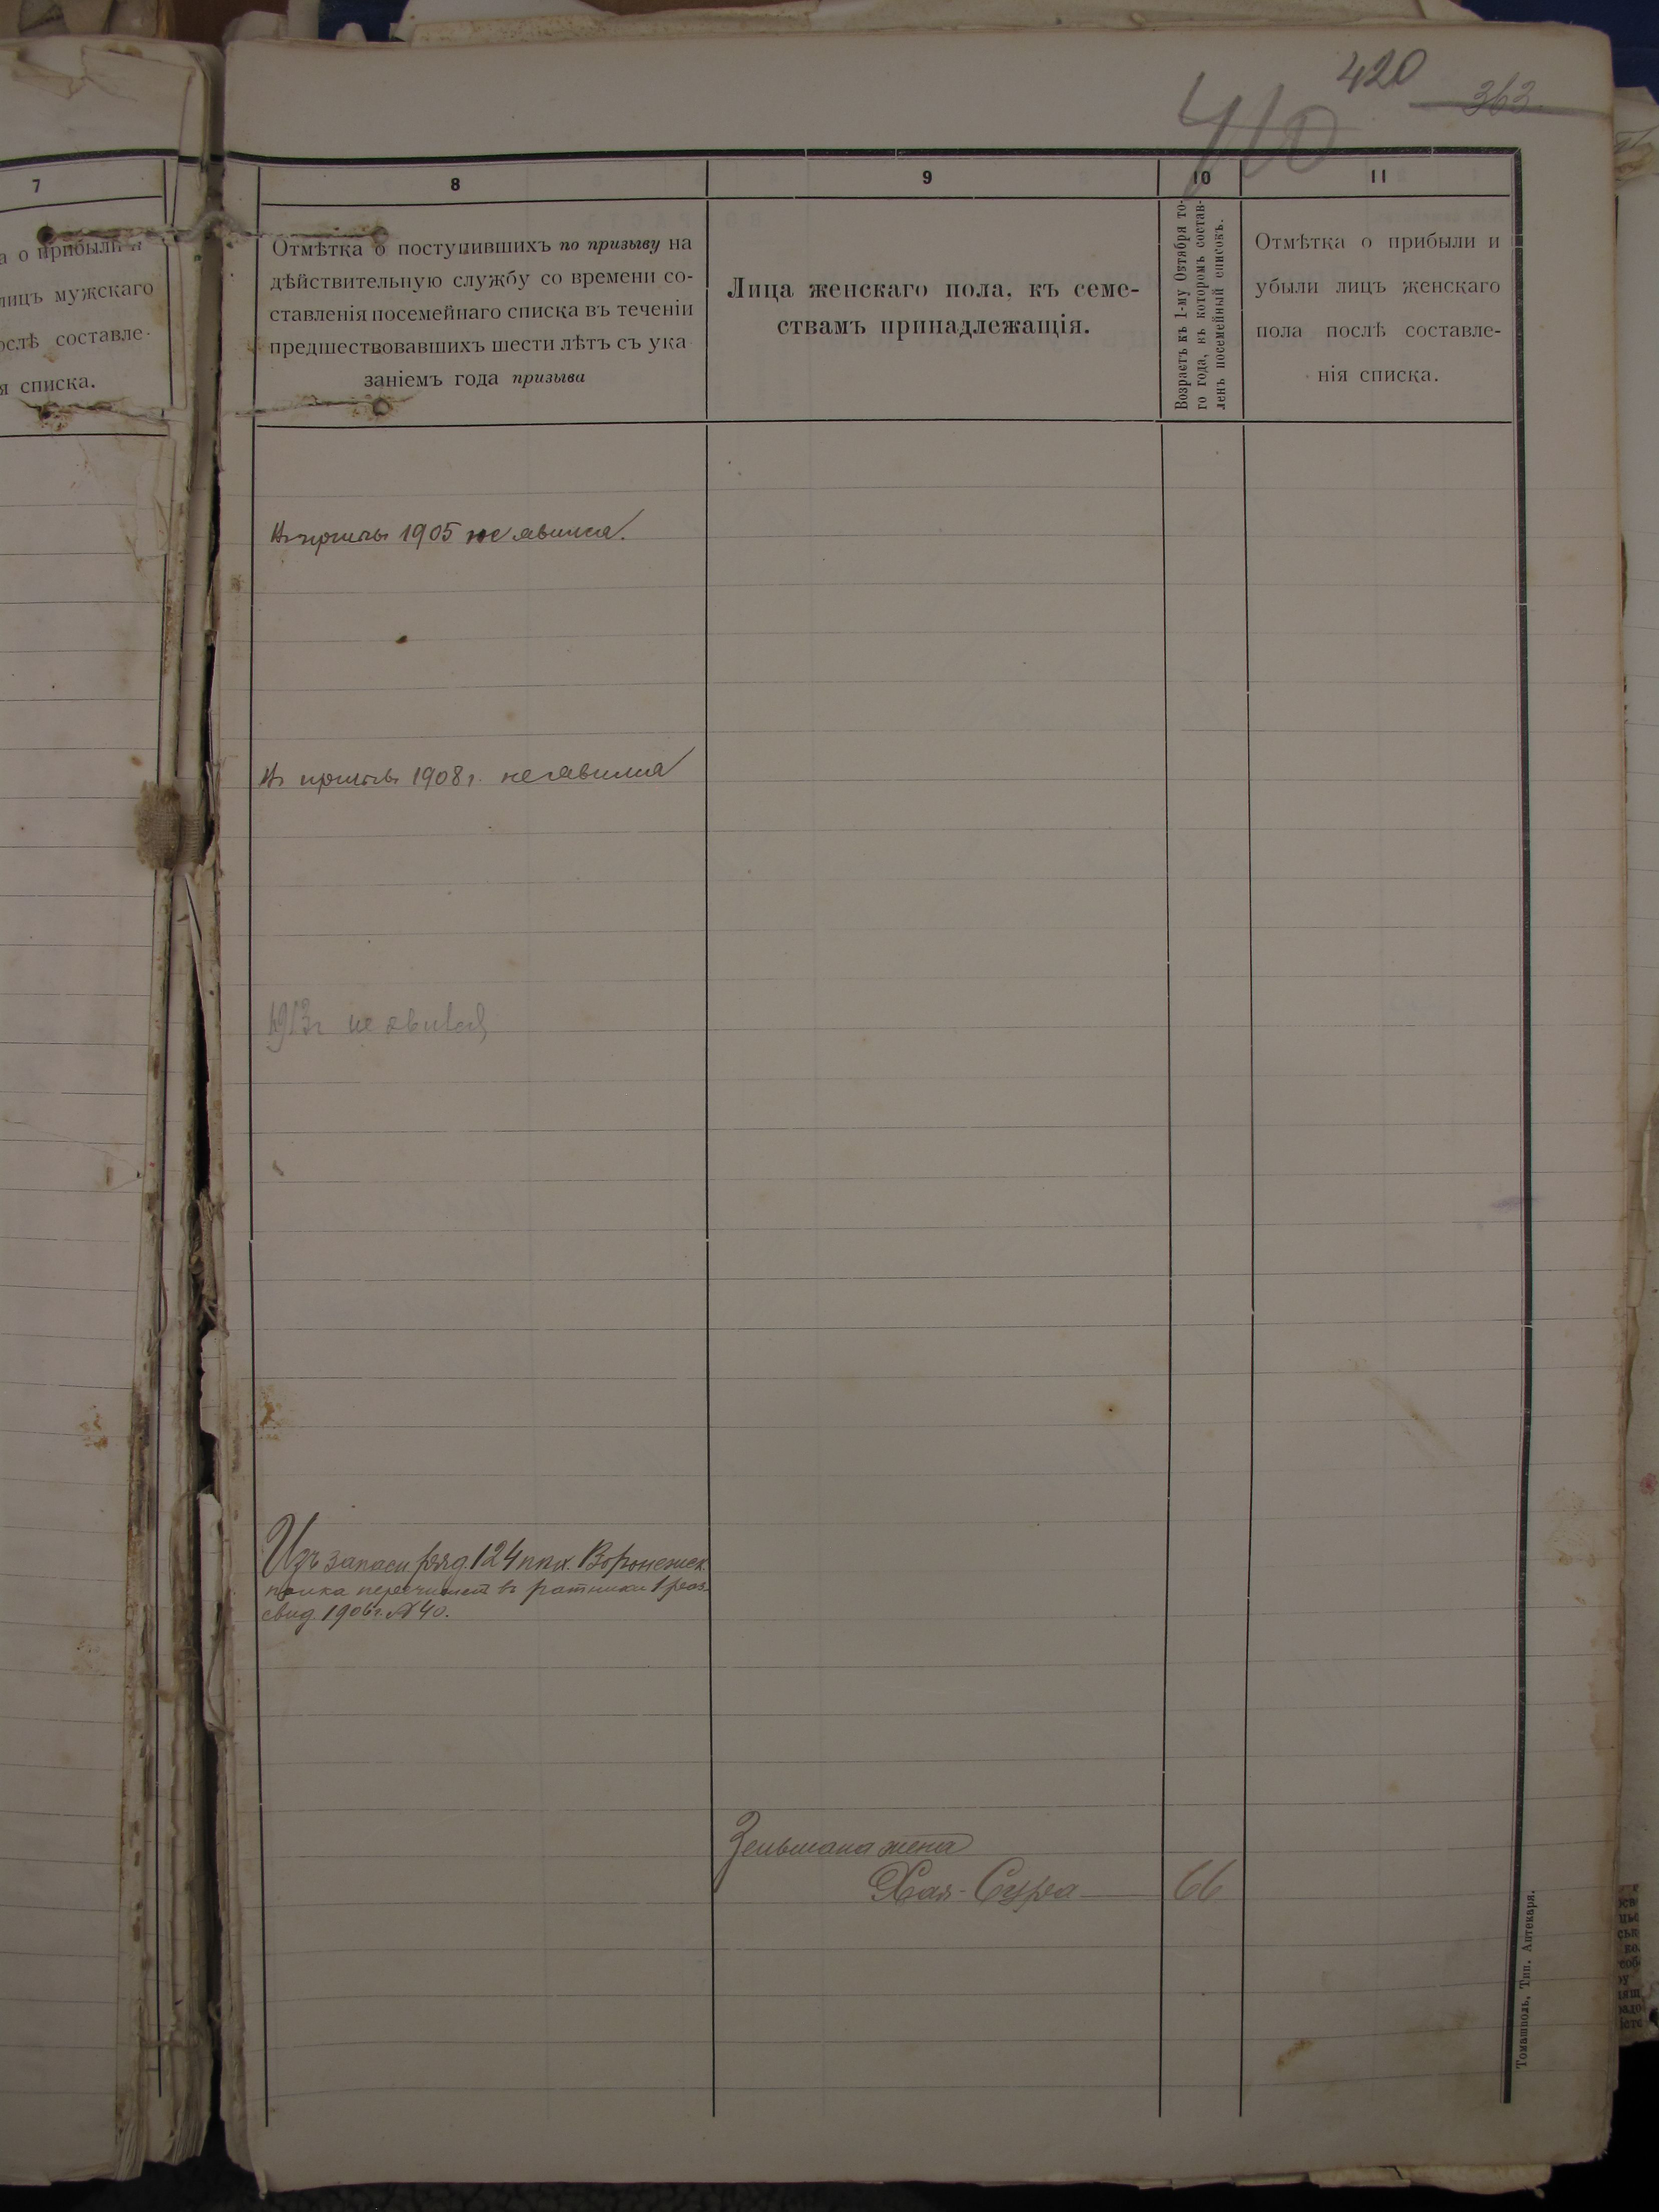 420
410
363
7
а о прибыли и
лицъ мужскаго
ослѣ составле-
я списка.
8
9
10
11
Отмѣтка о поступившихъ по призыву на
дѣйствительную службу со времени со-
ставленія посемейнаго списка въ теченіи
предшествовавшихъ шести лѣтъ съ ука
заніемъ года призыва
Лица женскаго пола, къ семе-
ствамъ принадлежащія.
Возрастъ къ 1-му Октября то-
го года, въ которомъ состав-
ленъ посемейный списокъ.
Отмѣтка о прибыли и
убыли лицъ женскаго
пола послѣ составле-
нія списка.
1905 не явился.
1908 г. не явился
1913г не явился
Изъ запасн. ряд. 124 Воронежск.
полка перечислен въ ратники 1 раз.
свид. 1906г. № 40.
Зельмана жена
Хая-Сура 66
Томашполь, Тип. Аптекаря.